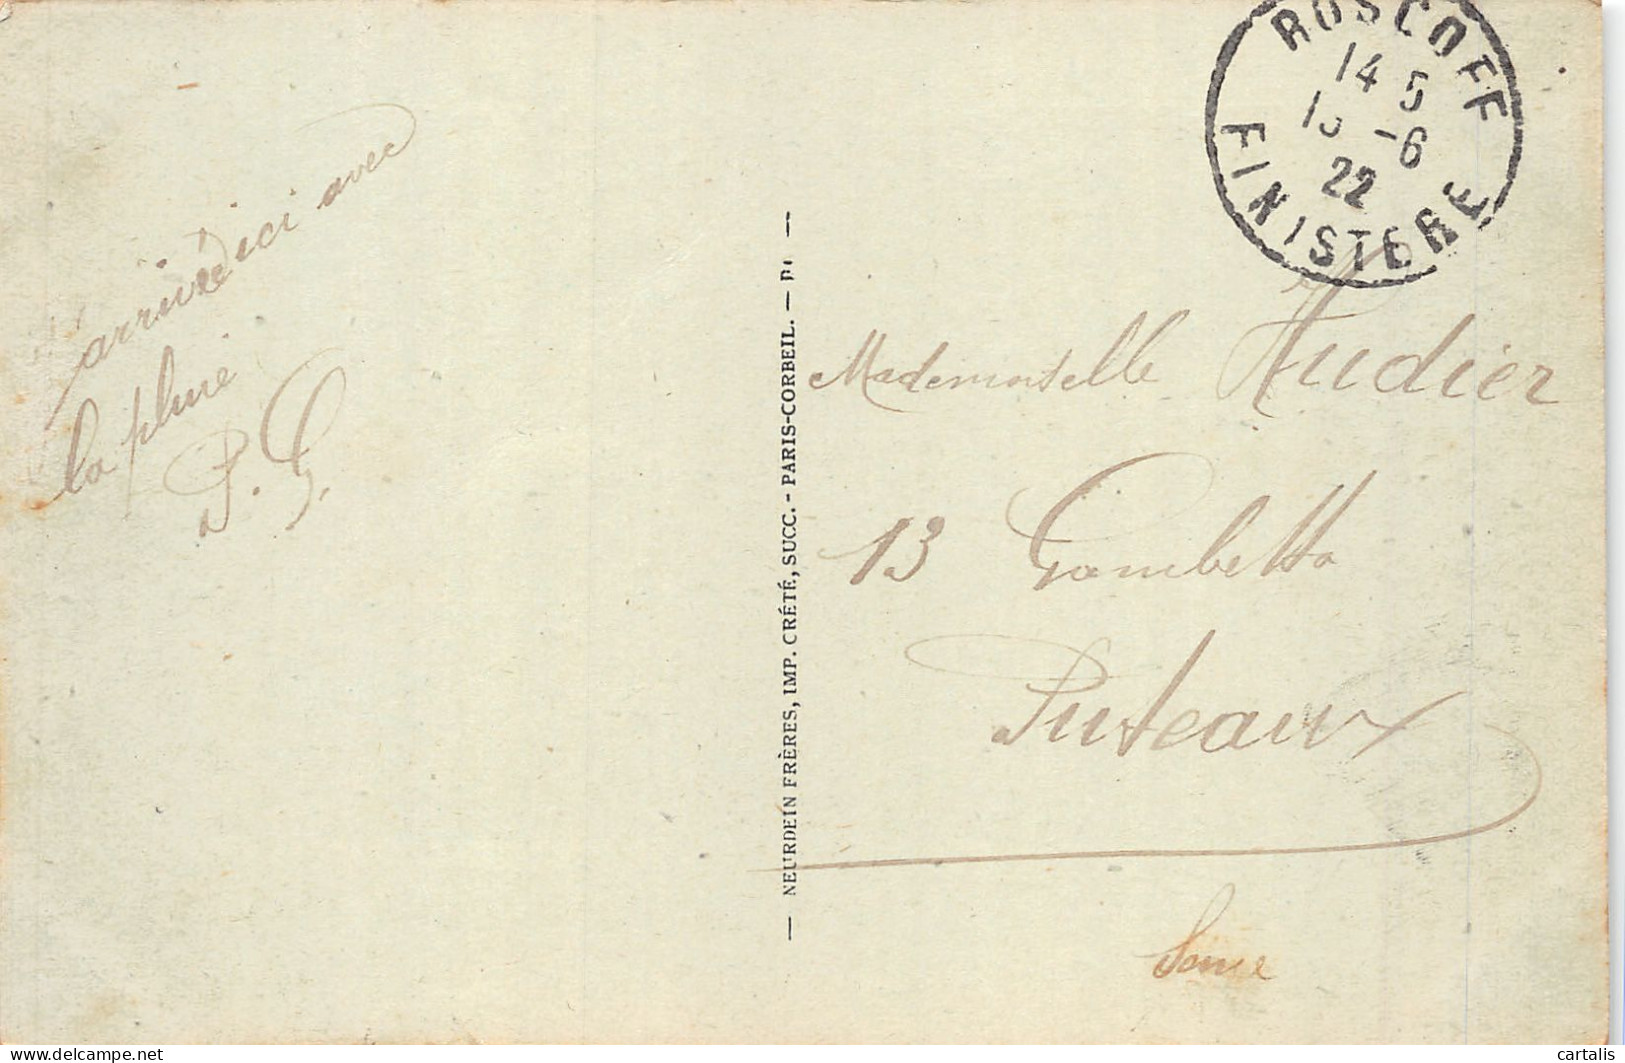 arrivée ici avec
la pluie
P. G.
— NEURDEIN FRÈRES, IMP. CRÉTÉ, SUCC. - PARIS-CORBEIL. —
ROSCOFF
14 5
-6
22
FINISTERE
Mademoiselle Audier
13 Gambetta
Puteaux
Seine
cartalis